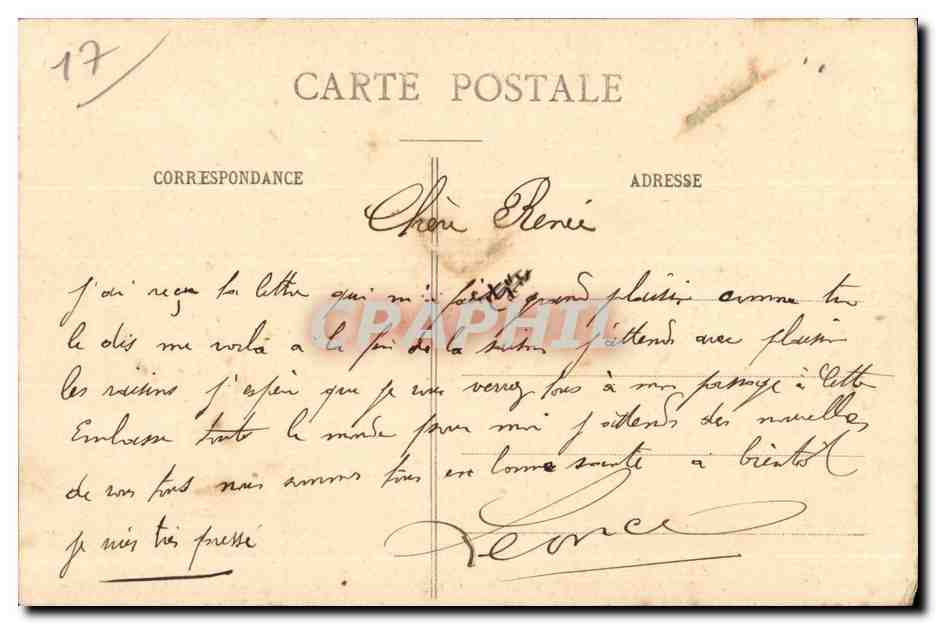 17
CARTE POSTALE
CORRESPONDANCE
ADRESSE
Chère Renée
j'ai reçu ta lettre qui m'a fait grand plaisir comme tu
le dis me voila a la fin de la saison j'attends avec plaisir
les raisins j'espère que je vous verrez tous à mon passage à Cette
Embrasse toute le monde pour moi j'attends des nouvelles
de vous tous nous sommes tous en bonne santé a bientôt
je suis très pressé
Leonce
CPAPHIL